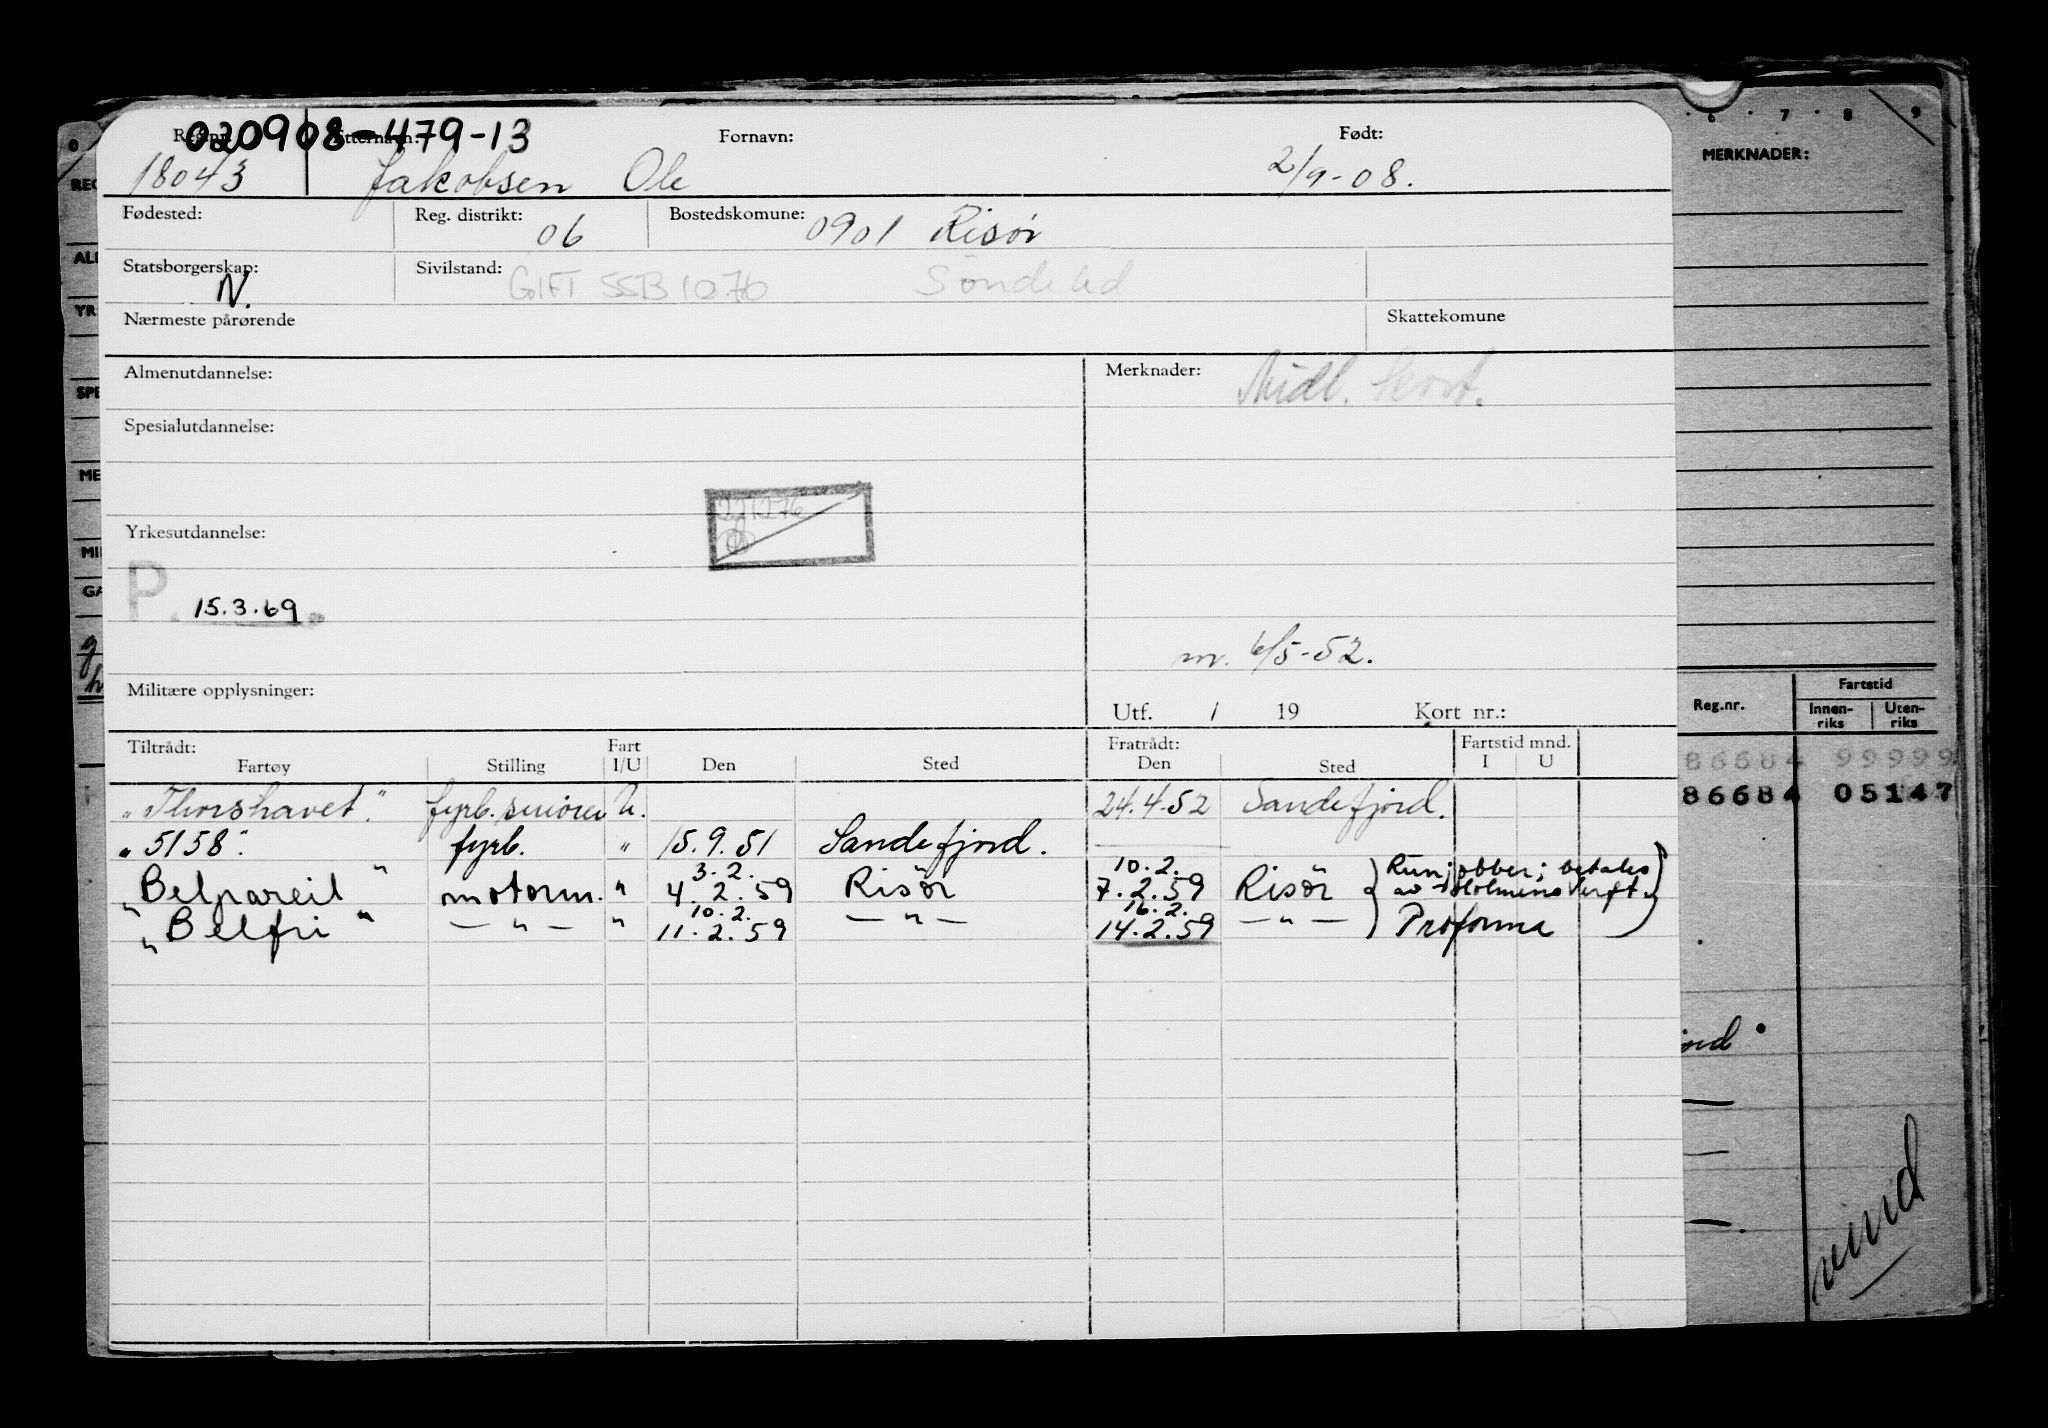 020908-479-13
Reg.nr. Etternavn: Fornavn: Født:
18043 Jakobsen Ole 2/9-08.
Fødested: Reg. distrikt: 06 Bostedskomune: 0901 Risør
Statsborgerskap: N. Sivilstand: GIFT SSB 10.76 Søndeled
Nærmeste pårørende Skattekomune
Almenutdannelse: Merknader: Midl. kort.
Spesialutdannelse:
221276
Yrkesutdannelse:
P. 15.3.69.
m. 6/5-52.
Militære opplysninger:
Utf. / 19 Kort nr.:
Tiltrådt: Fart Fratrådt: Fartstid mnd.
Fartøy Stilling I/U Den Sted Den Sted I U
"Thorshavet". fyrb. U. 24.4.52 Sandefjord.
"5158". fyrb. " 15.9.51 Sandefjord.
3.2. 10.2. Runjobber; betales
"Belpareil" motorm. " 4.2.59 Risör 7.2.59 Risör av Holmens Verft.
10.2. 16.2.
"Belfri" — " — " 11.2.59 — " — 14.2.59 — " — Proforma
6 7 8 9
MERKNADER:
Reg.nr. Fartstid
Innen-riks Uten-riks
86684 99999
86684 05147